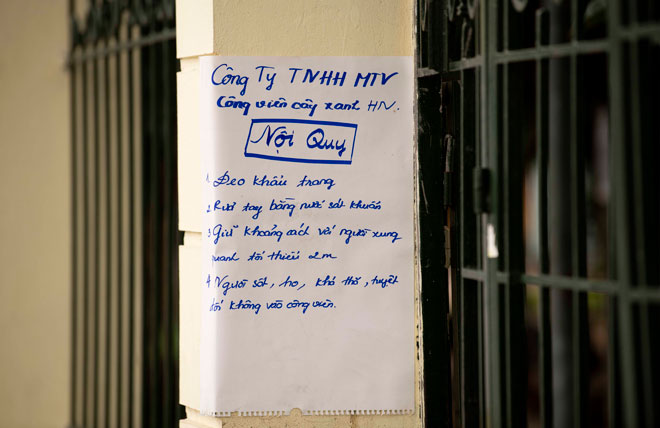 Công Ty TNHH MTV
Công viên cây xanh HN.
Nội Quy
1 Đeo khẩu trang
2 Rửa tay bằng nước sát khuẩn
3 Giữ khoảng cách với người xung
quanh tối thiểu 2m
4 Người sốt, ho, khó thở, tuyệt
đối không vào công viên.